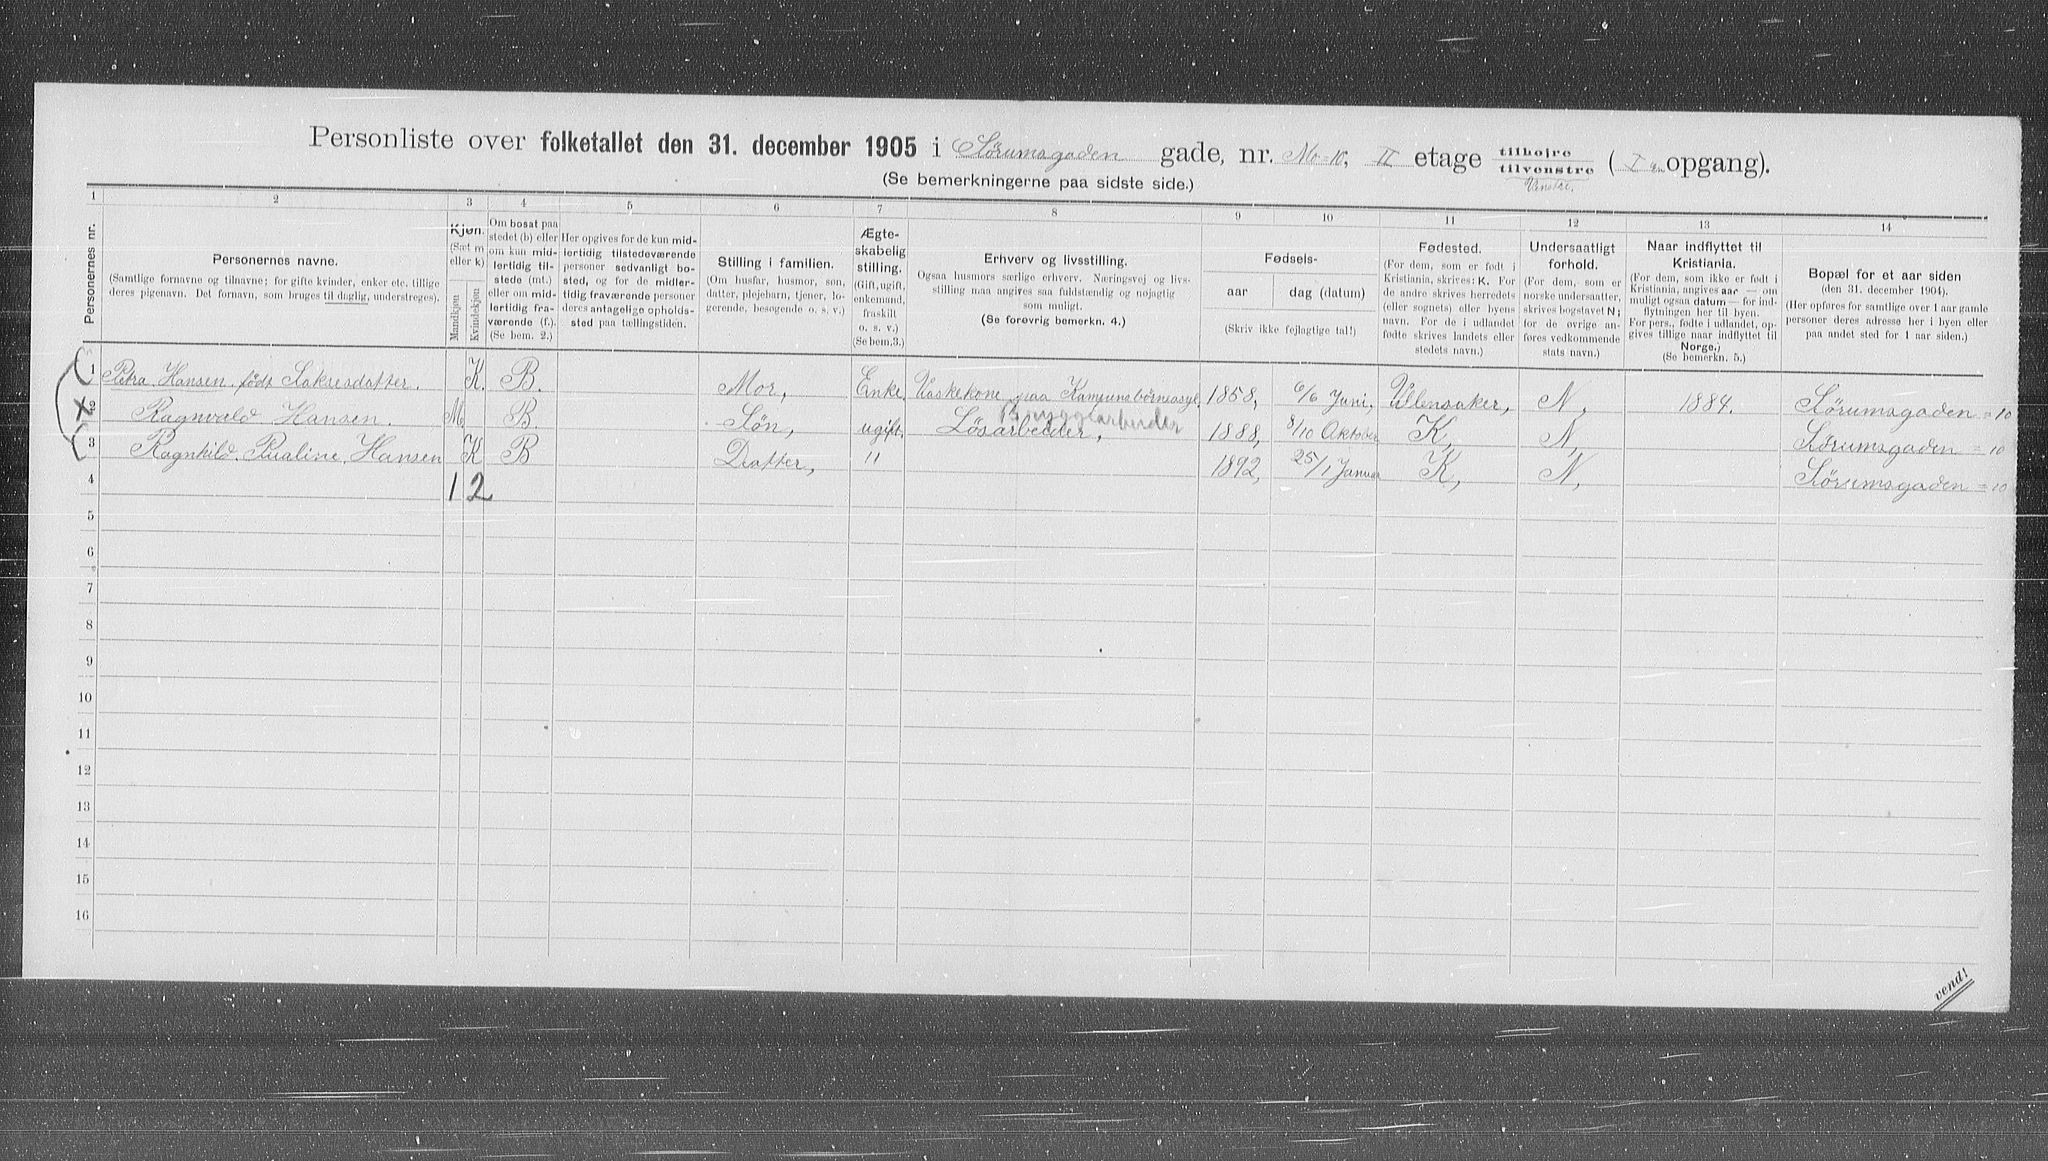 Personliste over folketallet den 31. december 1905 i Sørumsgaden gade, nr. No=10, II etage tilhøjre tilvenstre ( I opgang).
Venstre.
(Se bemerkningerne paa sidste side.)
1 2 3 4 5 6 7 8 9 10 11 12 13 14
Personernes nr.
Personernes navne.
(Samtlige fornavne og tilnavne; for gifte kvinder, enker etc. tillige
deres pigenavn. Det fornavn, som bruges til daglig, understreges).
Kjøn.
(Sæt m
eller k)
Mandkjøn
Kvindekjøn
Om bosat paa
stedet (b) eller
om kun mid-
lertidig til-
stede (mt.)
eller om mid-
lertidig fra-
værende (f.).
(Se bem. 2.)
Her opgives for de kun mid-
lertidig tilstedeværende
personer sedvanligt bo-
sted, og for de midler-
tidig fraværende personer
deres antagelige opholds-
sted paa tællingstiden.
Stilling i familien.
(Om husfar, husmor, søn,
datter, plejebarn, tjener, lo-
gerende, besøgende o. s. v.)
Ægte-
skabelig
stilling.
(Gift, ugift,
enkemand,
fraskilt
o. s. v.)
(Se bem.3.)
Erhverv og livsstilling.
Ogsaa husmors særlige erhverv. Næringsvej og livs-
stilling maa angives saa fuldstændig og nøjagtig
som muligt.
(Se forøvrig bemerkn. 4.)
Fødsels-
aar
dag (datum)
(Skriv ikke fejlagtige tal!)
Fødested.
(For dem, som er født i
Kristiania, skrives: K. For
de andre skrives herredets
(eller sognets) eller byens
navn. For de i udlandet
fødte skrives landets eller
stedets navn.)
Undersaatligt
forhold.
(For dem, som er
norske undersaatter,
skrives bogstavet N;
for de øvrige an-
føres vedkommende
stats navn.)
Naar indflyttet til
Kristiania.
(For dem, som ikke er født i
Kristiania, angives aar — om
muligt ogsaa datum — for ind-
flytningen her til byen.
For pers., fødte i udlandet, op-
gives tillige naar indflyttet til
Norge.)
(Se bemerkn. 5.)
Bopæl for et aar siden
(den 31. december 1904).
(Her opføres for samtlige over 1 aar gamle
personer deres adresse her i byen eller
paa andet sted for 1 aar siden.)
1 Petra Hansen født Saksesdatter. K. B. Mor, Enke Vaskekone paa Kamunsbörneasyl. 1858, 6/6 Juni, Ullensaker, N, 1884. Sørumsgaden = 10
Bryggearbeider
2 Ragnvald Hansen. M. B. Søn, ugift, Lösarbeider, 1888, 8/10 Oktober K, N, Sørumsgaden = 10
3 Ragnhild Pualine Hansen K B Datter, " 1892, 25/1 Januar K, N, Sørumsgaden = 10
4 1 2
5
6
7
8
9
10
11
12
13
14
15
16
vend!